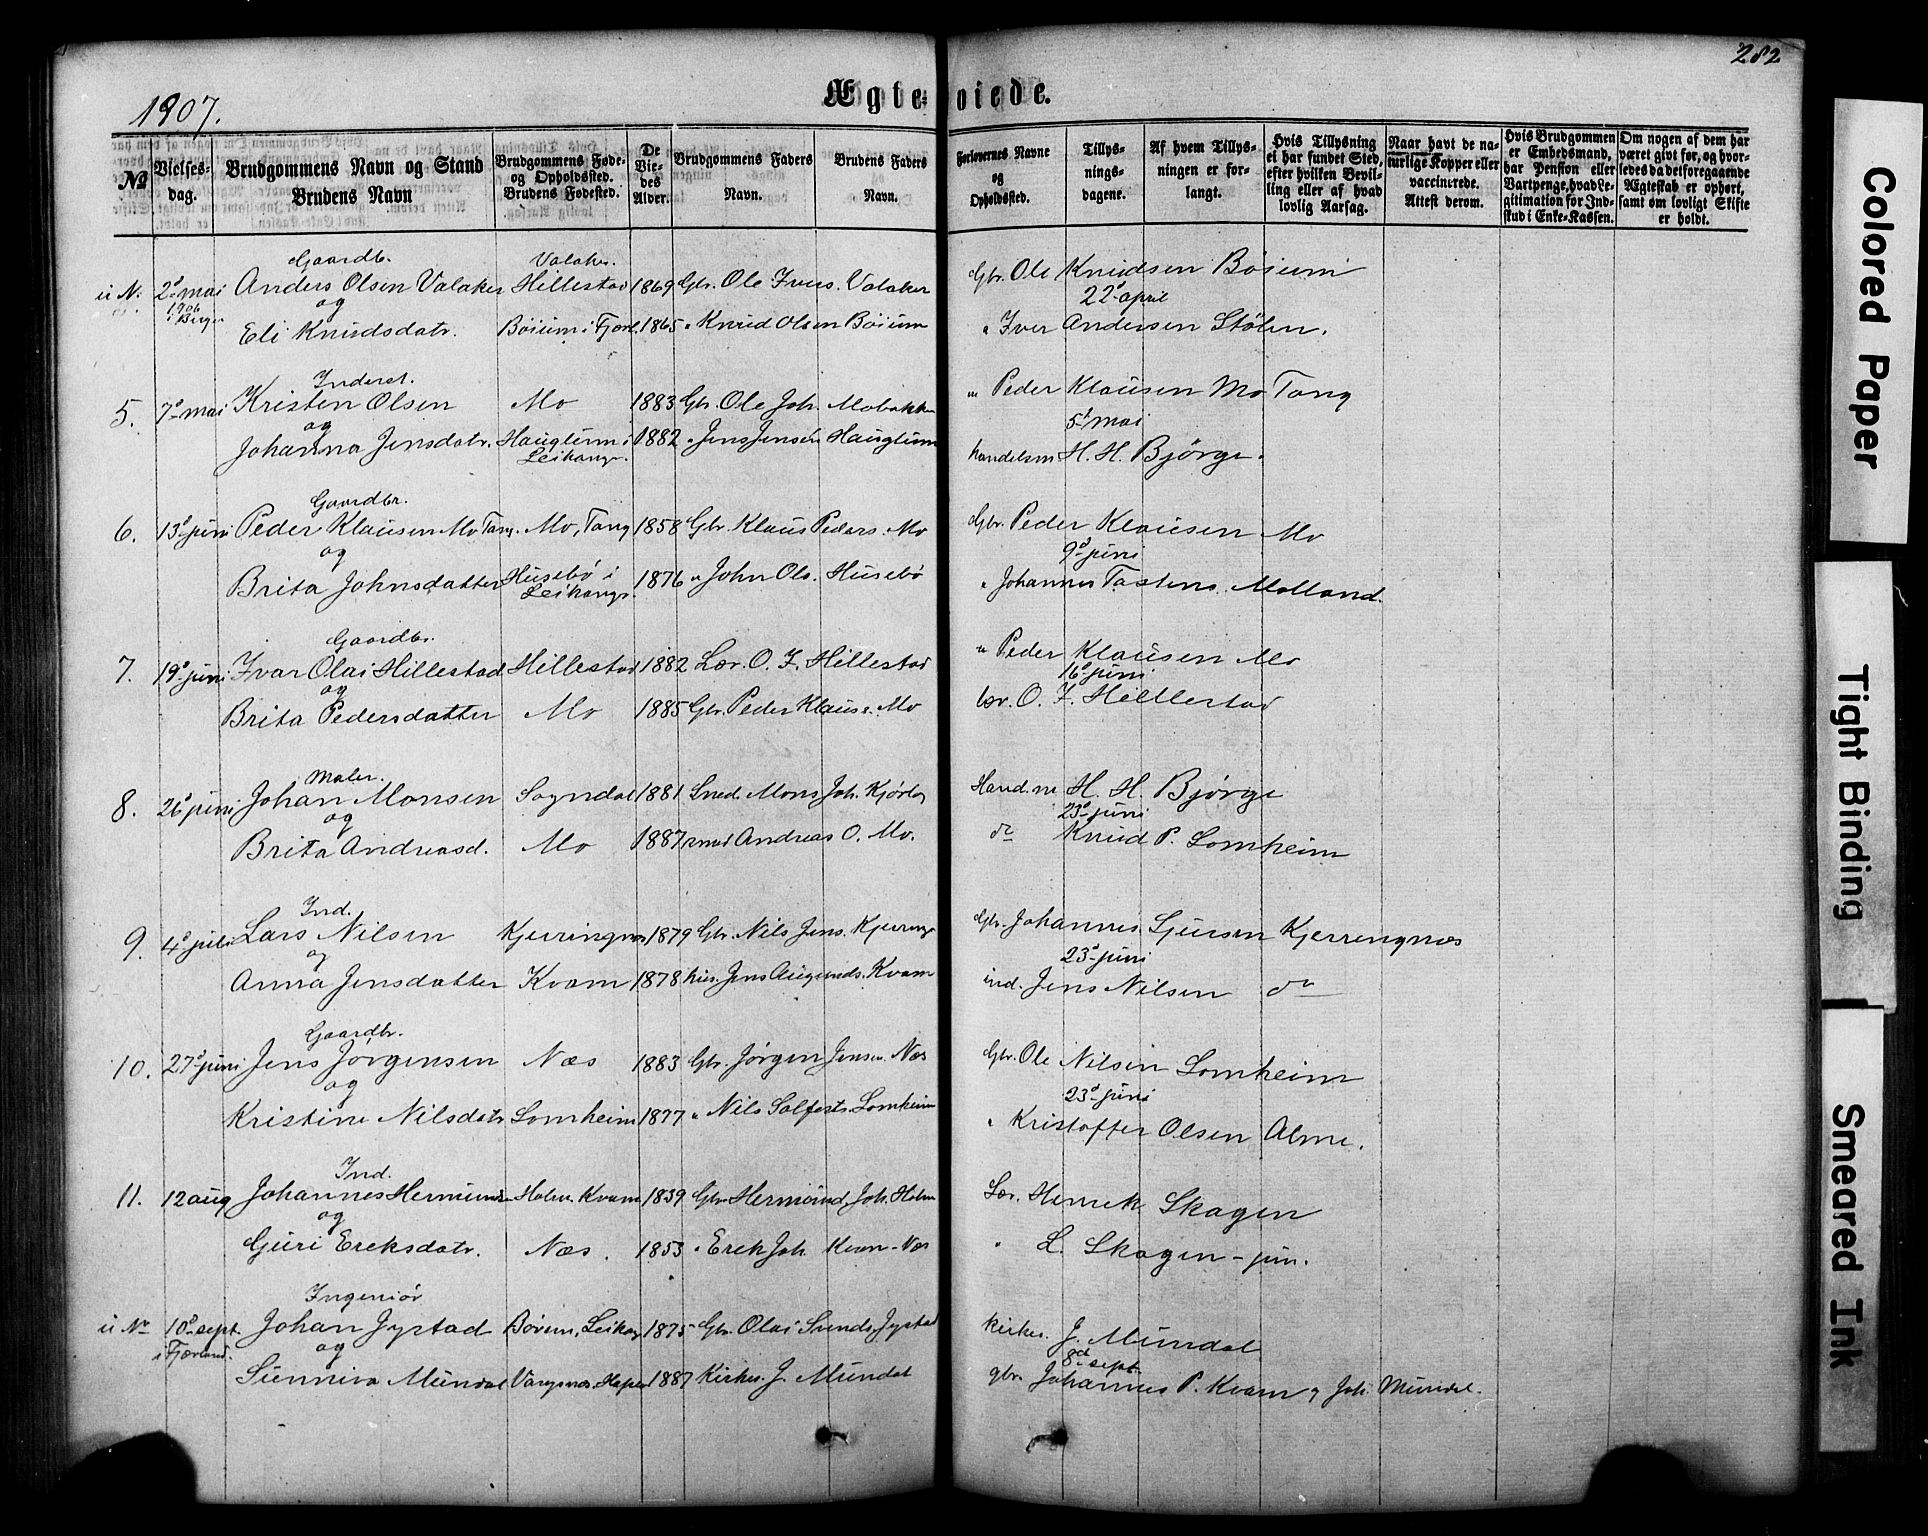 282
1907.
Ægte-viede.
№
Vielses-dag.
Brudgommens Navn og Stand
Brudens Navn
Brudgommens Føde- og Opholdssted.
Brudens Fødested.
De Viedes Alder.
Brudgommens Faders Navn.
Brudens Faders Navn.
Forlovernes Navne og Opholdssted.
Tillys-nings-dagene.
Af hvem Tillys-ningen er for-langt.
Hvis Tillysning ei har fundet Sted, efter hvilken Bevil-ling eller af hvad lovlig Aarsag.
Naar havt de na-turlige Kopper eller vaccinerede. Attest derom.
Hvis Brudgommen er Embedsmand, har Pension eller Vartpenge, hvad Le-gitimation for Ind-skud i Enke-Kassen.
Om nogen af dem har været gift før, og hvor-ledes da det foregaaende Ægteskab er ophørt, samt om lovligt Skifte er holdt.
Gaardbr. Valaker.
u N. 2d mai Anders Olsen Valaker Hillestad 1869 Gbr. Ole Ivers. Valaker Gbr. Ole Knudsen Böium
1906 og 22d april
Eli Knudsdatr. Böium i Fjærl. 1865 " Knud Olsen Böium " Iver Andersen Stölen.
Inderst.
5. 7d mai Kristen Olsen Mo 1883 Gbr. Ole Joh. Mobakken " Peder Klausen Mo Tang
og 5t mai
Johanna Jensdatr. Hauglum i Leikanger. 1882 " Jens Jensen Hauglum handelsm H. H. Bjørge.
Gaardbr.
6. 13d juni Peder Klausen Mo Tang. Mo, Tang 1858 Gbr. Klaus Peders. Mo Gbr. Peder Klausen Mo
og 9d juni
Brita Johnsdatter Husebö i Leikangr. 1876 " John Ols. Husebö " Johannes Tostens. Molland.
Gaardbr.
7. 19d juni Ivar Olai Hillestad Hillestad 1882 Lær. O. I. Hillestad " Peder Klausen Mo
og 16d juni
Brita Pedersdatter Mo 1885 Gbr. Peder Klaus. Mo lær. O. I. Hillestad
Maler.
8. 26d juni Johan Monsen Sogndal 1881 Sned. Mons Joh. Hand.m H. H. Bjørge
og 23d juni
Brita Andreasd. Mo 1887 Andreas O. Mo. do Knud P. Lomheim
Ind.
9. 4d juli Lars Nilsen Kjerringnes 1879 Gbr. Nils Jens. Kjerringn Gbr. Johannes Sjursen Kjerringnæs
og 23d juni
Anna Jensdatter Kvam 1878 hus. Jens Augunds. Kvam ind. Jens Nilsen do
Gaardbr.
10. 27d juni Jens Jörgensen Næs 1883 Gbr. Jörgen Jensen Næs Gbr. Ole Nilsen Lomheim
og 23d juni
Kristine Nilsdatr Lomheim 1877 " Nils Solfests. Lomheim " Kristoffer Olsen Alme.
Ind.
11. 12 aug Johannes Hermunds. Holm. Kvam 1839 Gbr Hermund Joh. Holm Lær. Henrik Skagen
og
Guri Ereksdatr. Næs. 1853 " Erek Joh. Kvam-Næs " L. Skagen - jun.
Ingeniør
u No 10d sept. Johan Jystad Leikang 1875 Gbr. Olai Svends. Jystad kirkes. J. Mundal
i Fjærland. og 8d sept.
Sunniva Mundal Vangsnæs 1887 Kirkes. J. Mundal gbr. Johannes P. Kvam og Joh. Mundal.
Colored Paper
Tight Binding
Smeared Ink